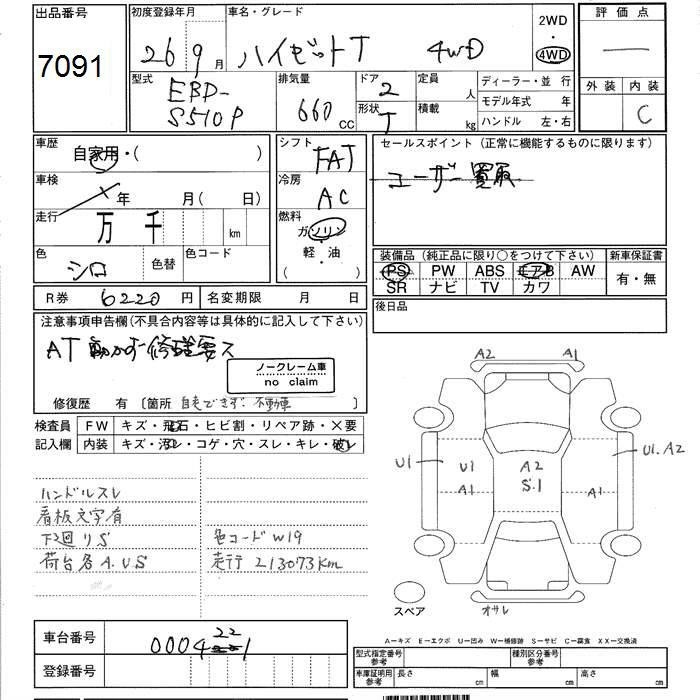 出品番号 初度登録年月 車名・グレード 2WD 評価点
7091 26 9月 ハイゼットT 4WD 4WD
型式 排気量 ドア 定員 ディーラー・並行 外装 内装
EBD- 660 CC 2 人 モデル年式 年 C
S510P 形状 T 積載 kg ハンドル 左・右
車歴 自家用・( ) シフト FAT セールスポイント (正常に機能するものに限ります)
車検 年 月(日) 冷房 AC ユーザー買取
走行 万 千 km 燃料 ガソリン
色 シロ 色替 色コード 軽・油 装備品 (純正品に限り○をつけて下さい) 新車保証書
PS PW ABS エアB AW 有・無
SR ナビ TV カワ
R券 6220円 名変期限 月 日 後日品
注意事項申告欄(不具合内容等は具体的に記入して下さい)
AT動かず修理要ス
ノークレーム車
no claim
修復歴 有 〔箇所 自走できず・不動車 〕
検査員 FW キズ・飛石・ヒビ割・リペア跡・×要
記入欄 内装 キズ・汚レ・コゲ・穴・スレ・キレ・破レ
ハンドルスレ
看板文字有
下廻りS 色コードW19
荷台各A.U.S 走行 213073km
A2 A1
U1 U1 A2 U1.A2
A1 S.1 A1
スペア オサレ
A—キズ E—エクボ U—凹み W—補修跡 S—サビ C—腐食 XX—交換済
車台番号 0004 22 1
登録番号
型式指定番号 参考 種別区分番号 参考
車庫証明用 参考 長さ cm 幅 cm 高さ cm